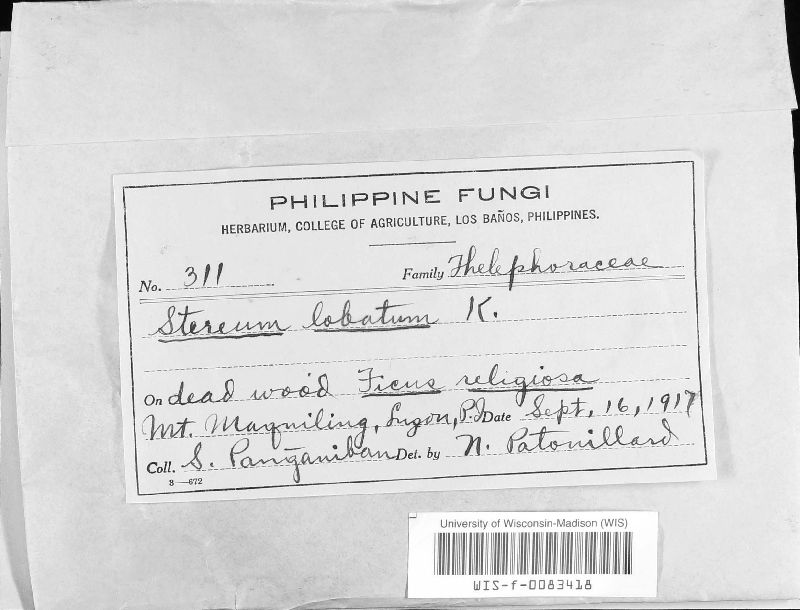 PHILIPPINE FUNGI
HERBARIUM, COLLEGE OF AGRICULTURE, LOS BAÑOS, PHILIPPINES.
No. 311 Family Thelephoraceae
Stereum lobatum K.
On dead wood Ficus religiosa
Mt. Maquiling, Luzon, P.I. Date Sept. 16, 1917
Coll. S. Panganiban Det. by N. Patouillard
3—672
University of Wisconsin-Madison (WIS)
WIS-f-0083418